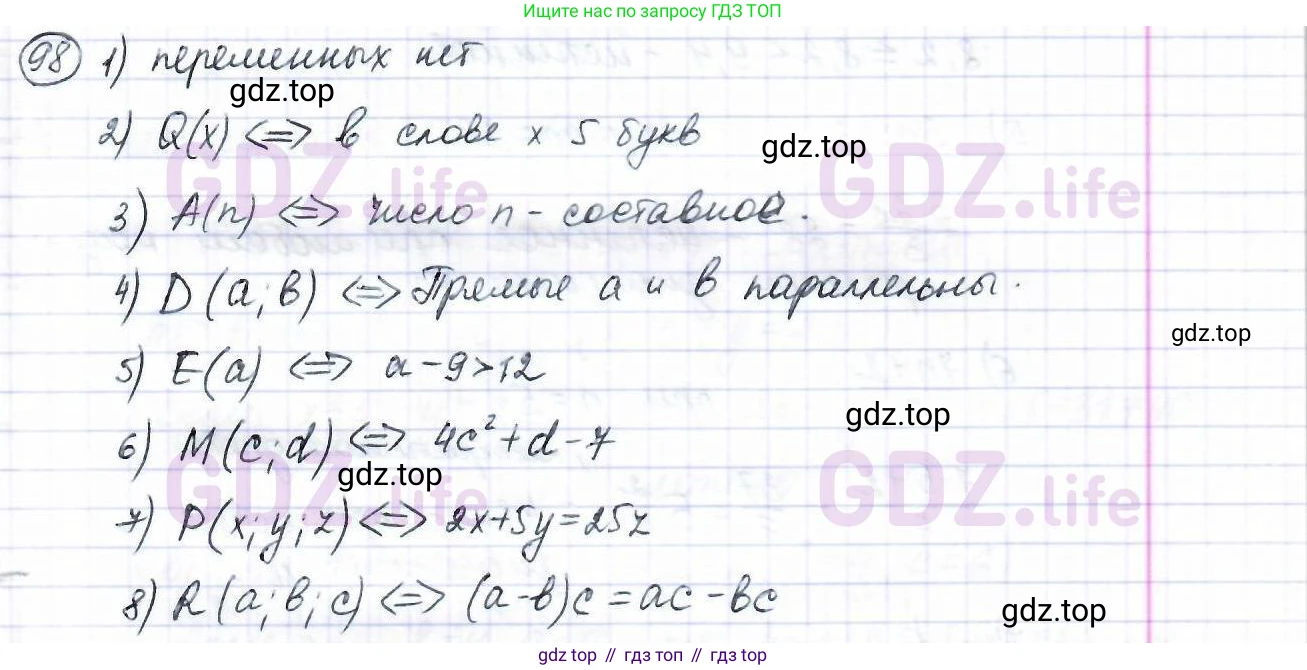 Ищите нас по запросу ГДЗ ТОП
98 1) переменных нет
gdz.top
2) Q(x) <=> в слове x 5 букв
gdz.top
GDZ.life GDZ.life
3) A(n) <=> число n - составное.
4) D(a;в) <=> Прямые a и в параллельны.
gdz.top
5) E(a) <=> a - 9 > 12
gdz.top
6) M(c;d) <=> 4c² + d - 7
gdz.top
GDZ.life GDZ.life
7) P(x;y;z) <=> 2x+5y=25z
8) R(a;в;c) <=> (a-в)c = ac - вc
gdz.top
gdz top // гдз топ // gdz top